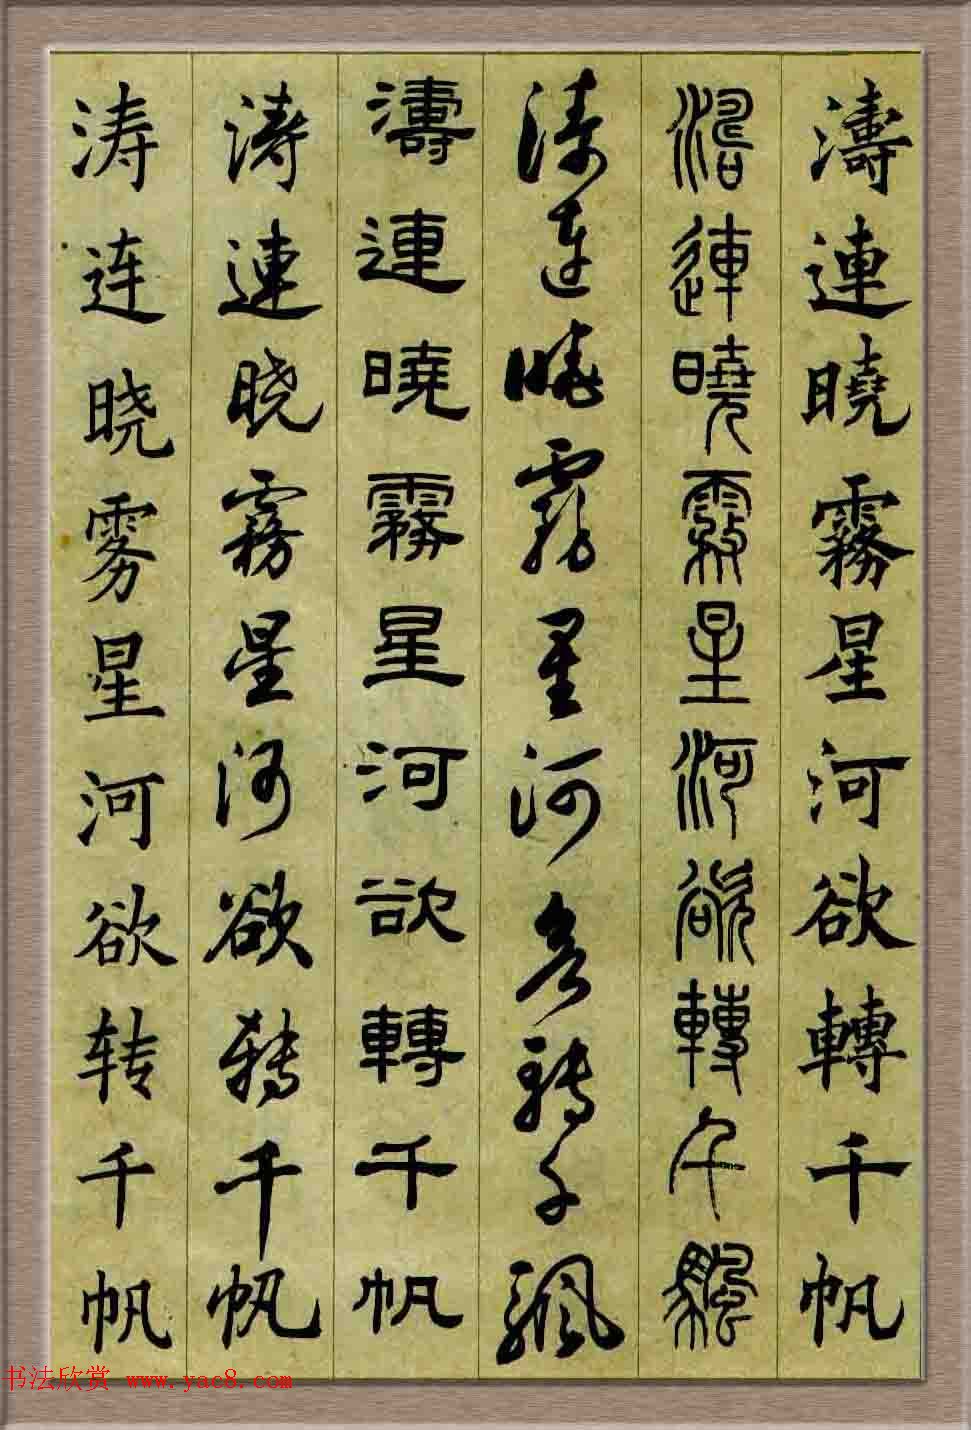 濤連曉霧星河欲轉千帆
濤連曉霧星河欲轉千颿
濤連曉霧星河欲轉千颿
濤連曉霧星河欲轉千帆
涛連晓霧星河欲转千帆
涛连晓雾星河欲转千帆
书法欣赏 www.yac8.com